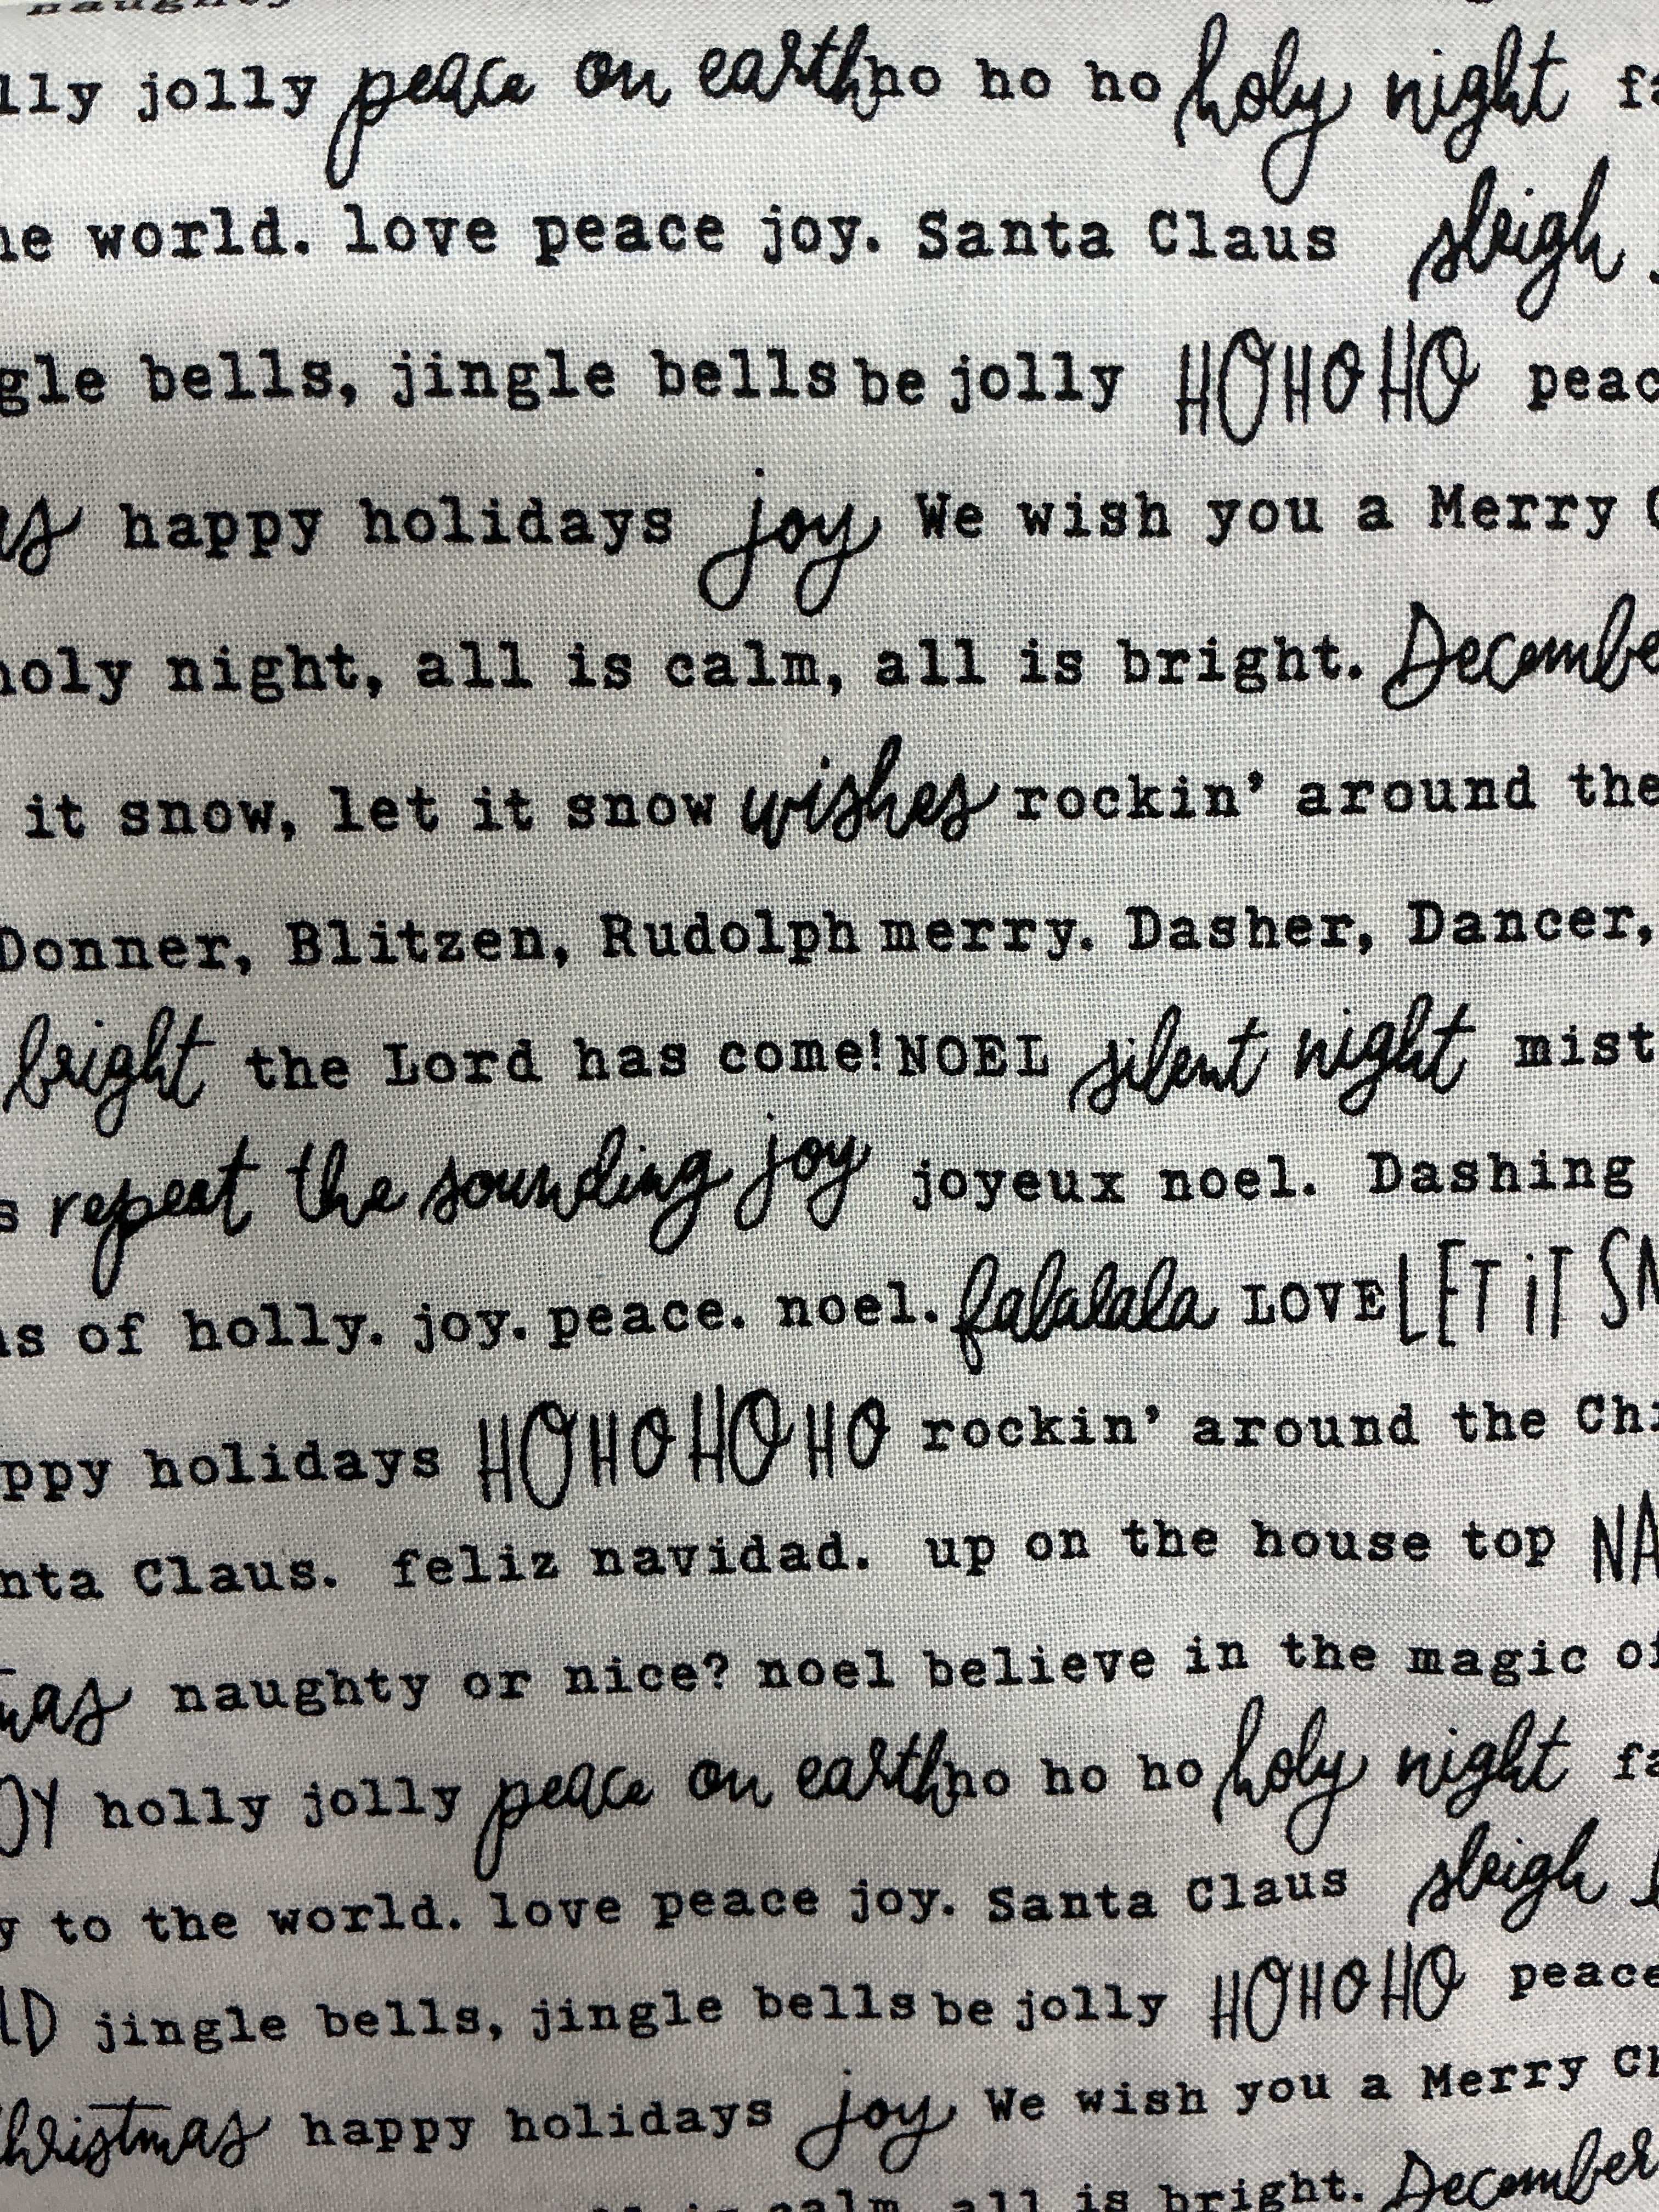 naughty
lly jolly peace on earth ho ho ho holy night fa
he world. love peace joy. Santa Claus sleigh
gle bells, jingle bells be jolly HOHOHO peac
as happy holidays joy We wish you a Merry C
holy night, all is calm, all is bright. Decembe
it snow, let it snow wishes rockin' around the
Donner, Blitzen, Rudolph merry. Dasher, Dancer,
bright the Lord has come! NOEL silent night mist
s repeat the sounding joy joyeux noel. Dashing
hs of holly. joy. peace. noel. falalala LOVE LET iT SN
ppy holidays HOHOHOHO rockin' around the Chi
nta Claus. feliz navidad. up on the house top NA
mas naughty or nice? noel believe in the magic of
OY holly jolly peace on earth ho ho ho holy night fa
y to the world. love peace joy. Santa Claus sleigh
LD jingle bells, jingle bells be jolly HOHOHO peace
Christmas happy holidays joy We wish you a Merry Ch
calm, all is bright. December